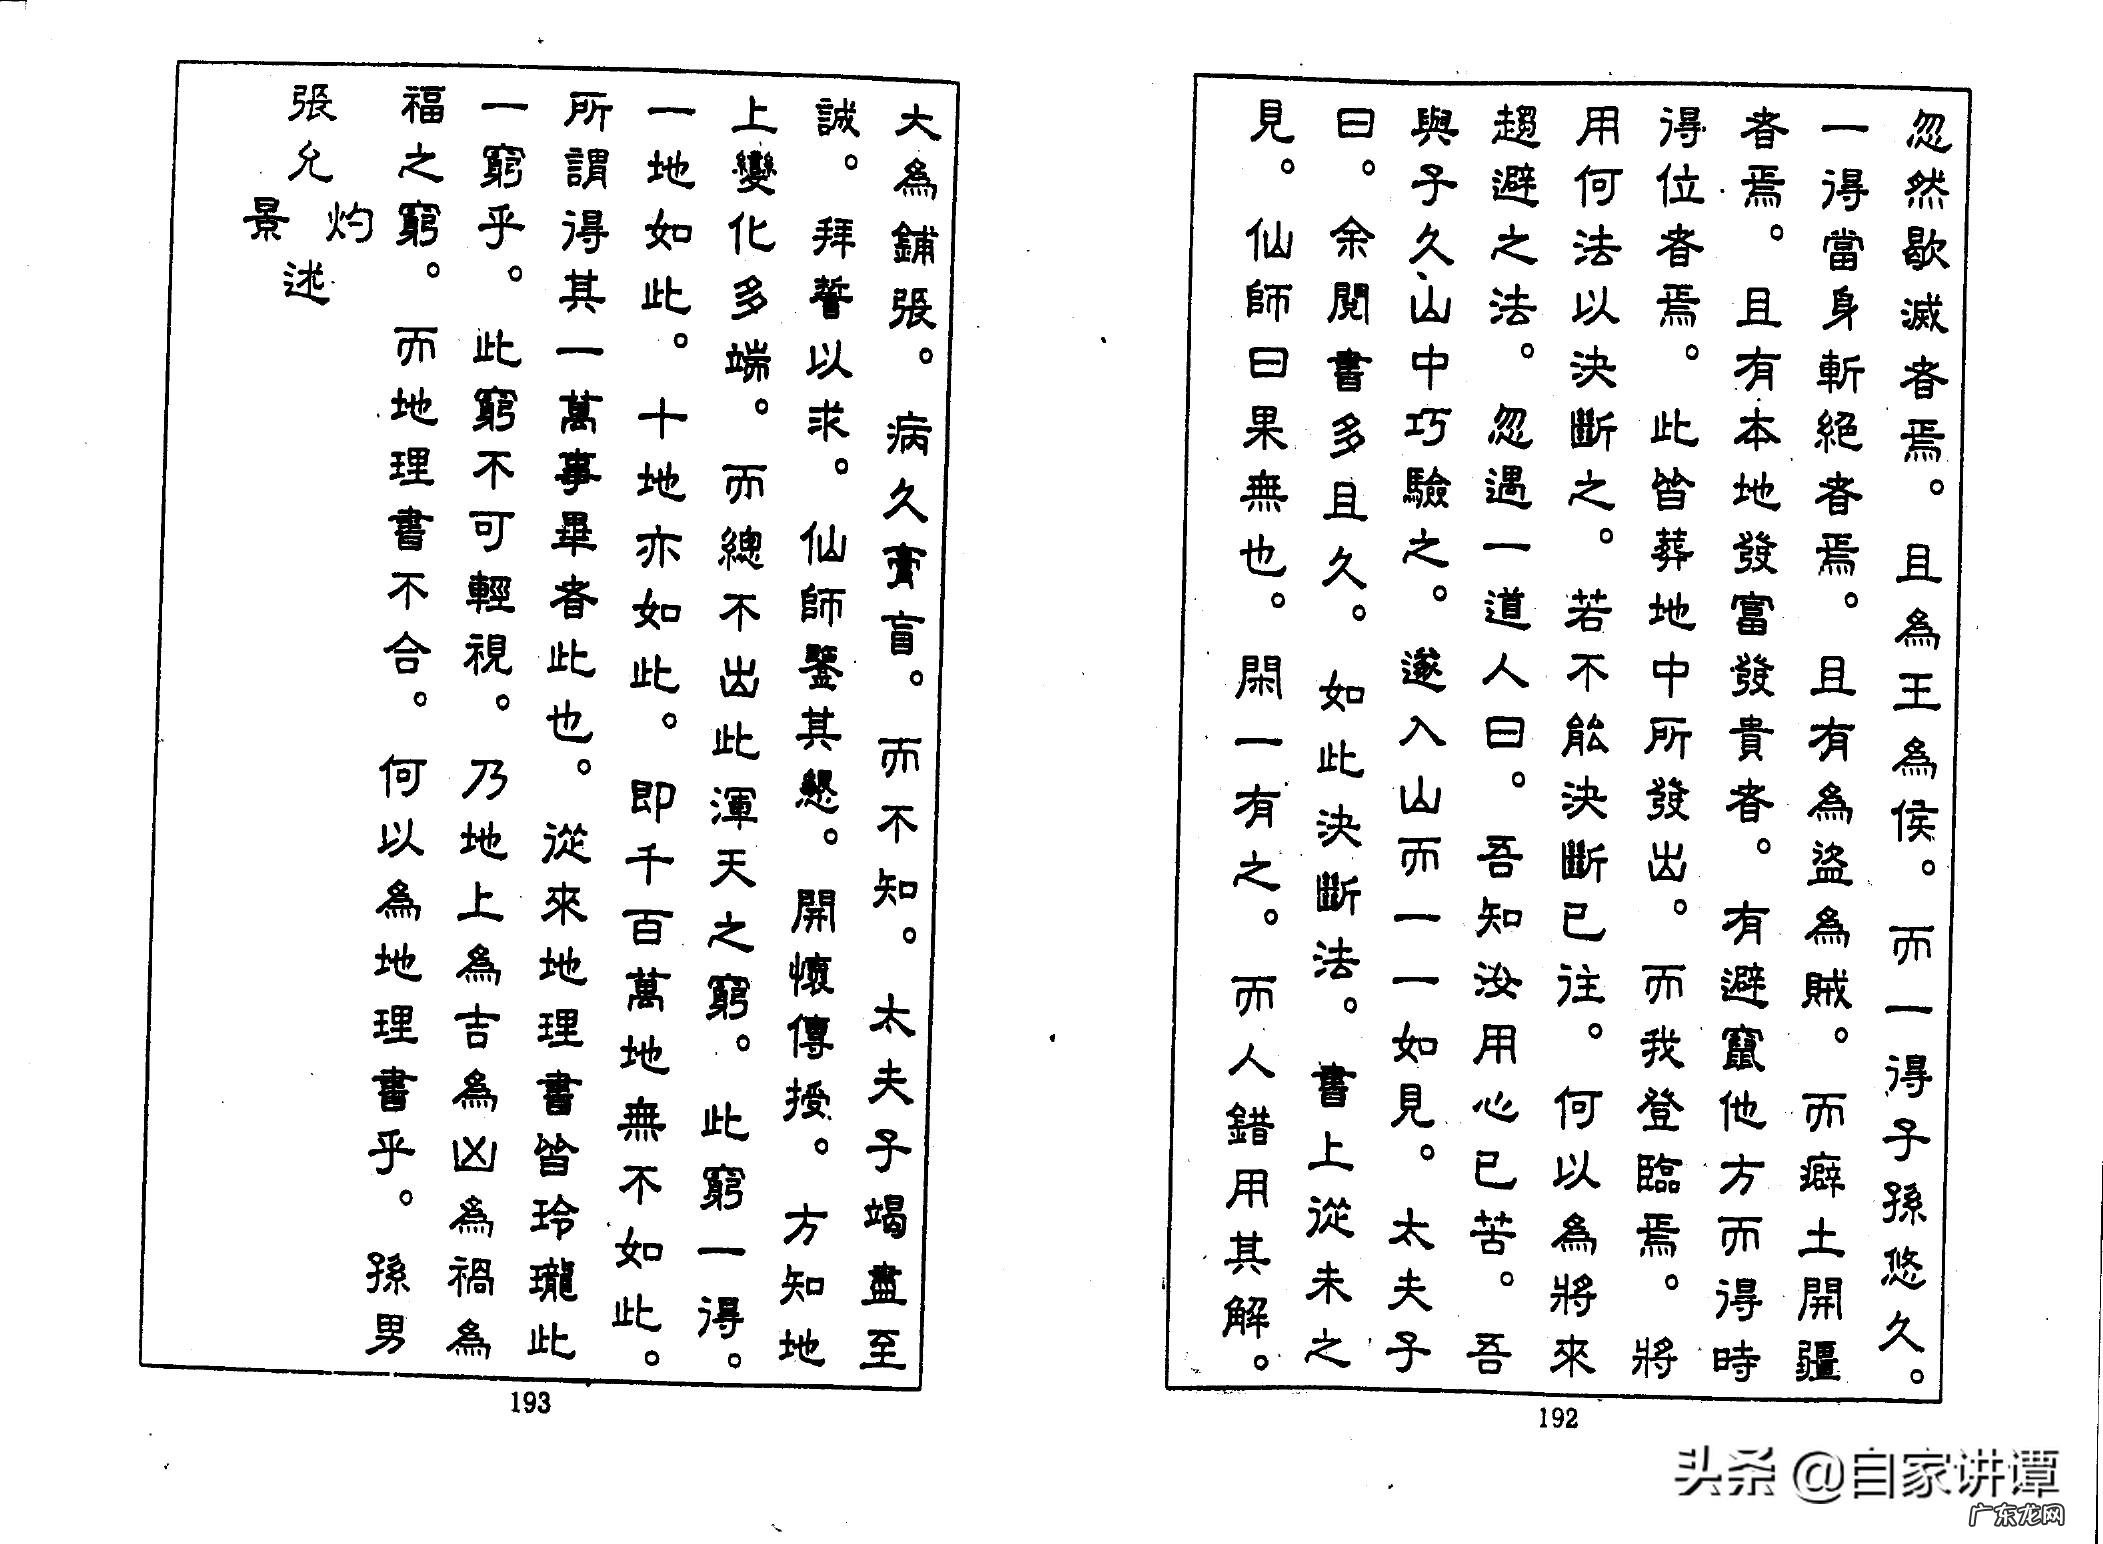 忽然歇滅者焉。且為王為侯。而一得子孫悠久。
一得當身斬絕者焉。且有為盜為賊。而癖土開疆
者焉。且有本地發富發貴者。有避竄他方而得時
得位者焉。此皆葬地中所發出。而我登臨焉。將
用何法以決斷之。若不能決斷已往。何以為將來
趨避之法。忽遇一道人曰。吾知汝用心已苦。吾
與子久山中巧驗之。遂入山而一一如見。太夫子
曰。余閱書多且久。如此決斷法。書上從未之
見。仙師曰果無也。閑一有之。而人錯用其解。
192
大為鋪張。病久膏盲。而不知。太夫子竭盡至
誠。拜誓以求。仙師鑒其懇。開懷傳授。方知地
上變化多端。而總不出此渾天之窮。此窮一得。
一地如此。十地亦如此。即千百萬地無不如此。
所謂得其一萬事畢者此也。從來地理書皆玲瓏此
一窮乎。此窮不可輕視。乃地上為吉為凶為禍為
福之窮。而地理書不合。何以為地理書乎。孫男
張允灼景述
193
头条 @自家讲谭
广东龙网